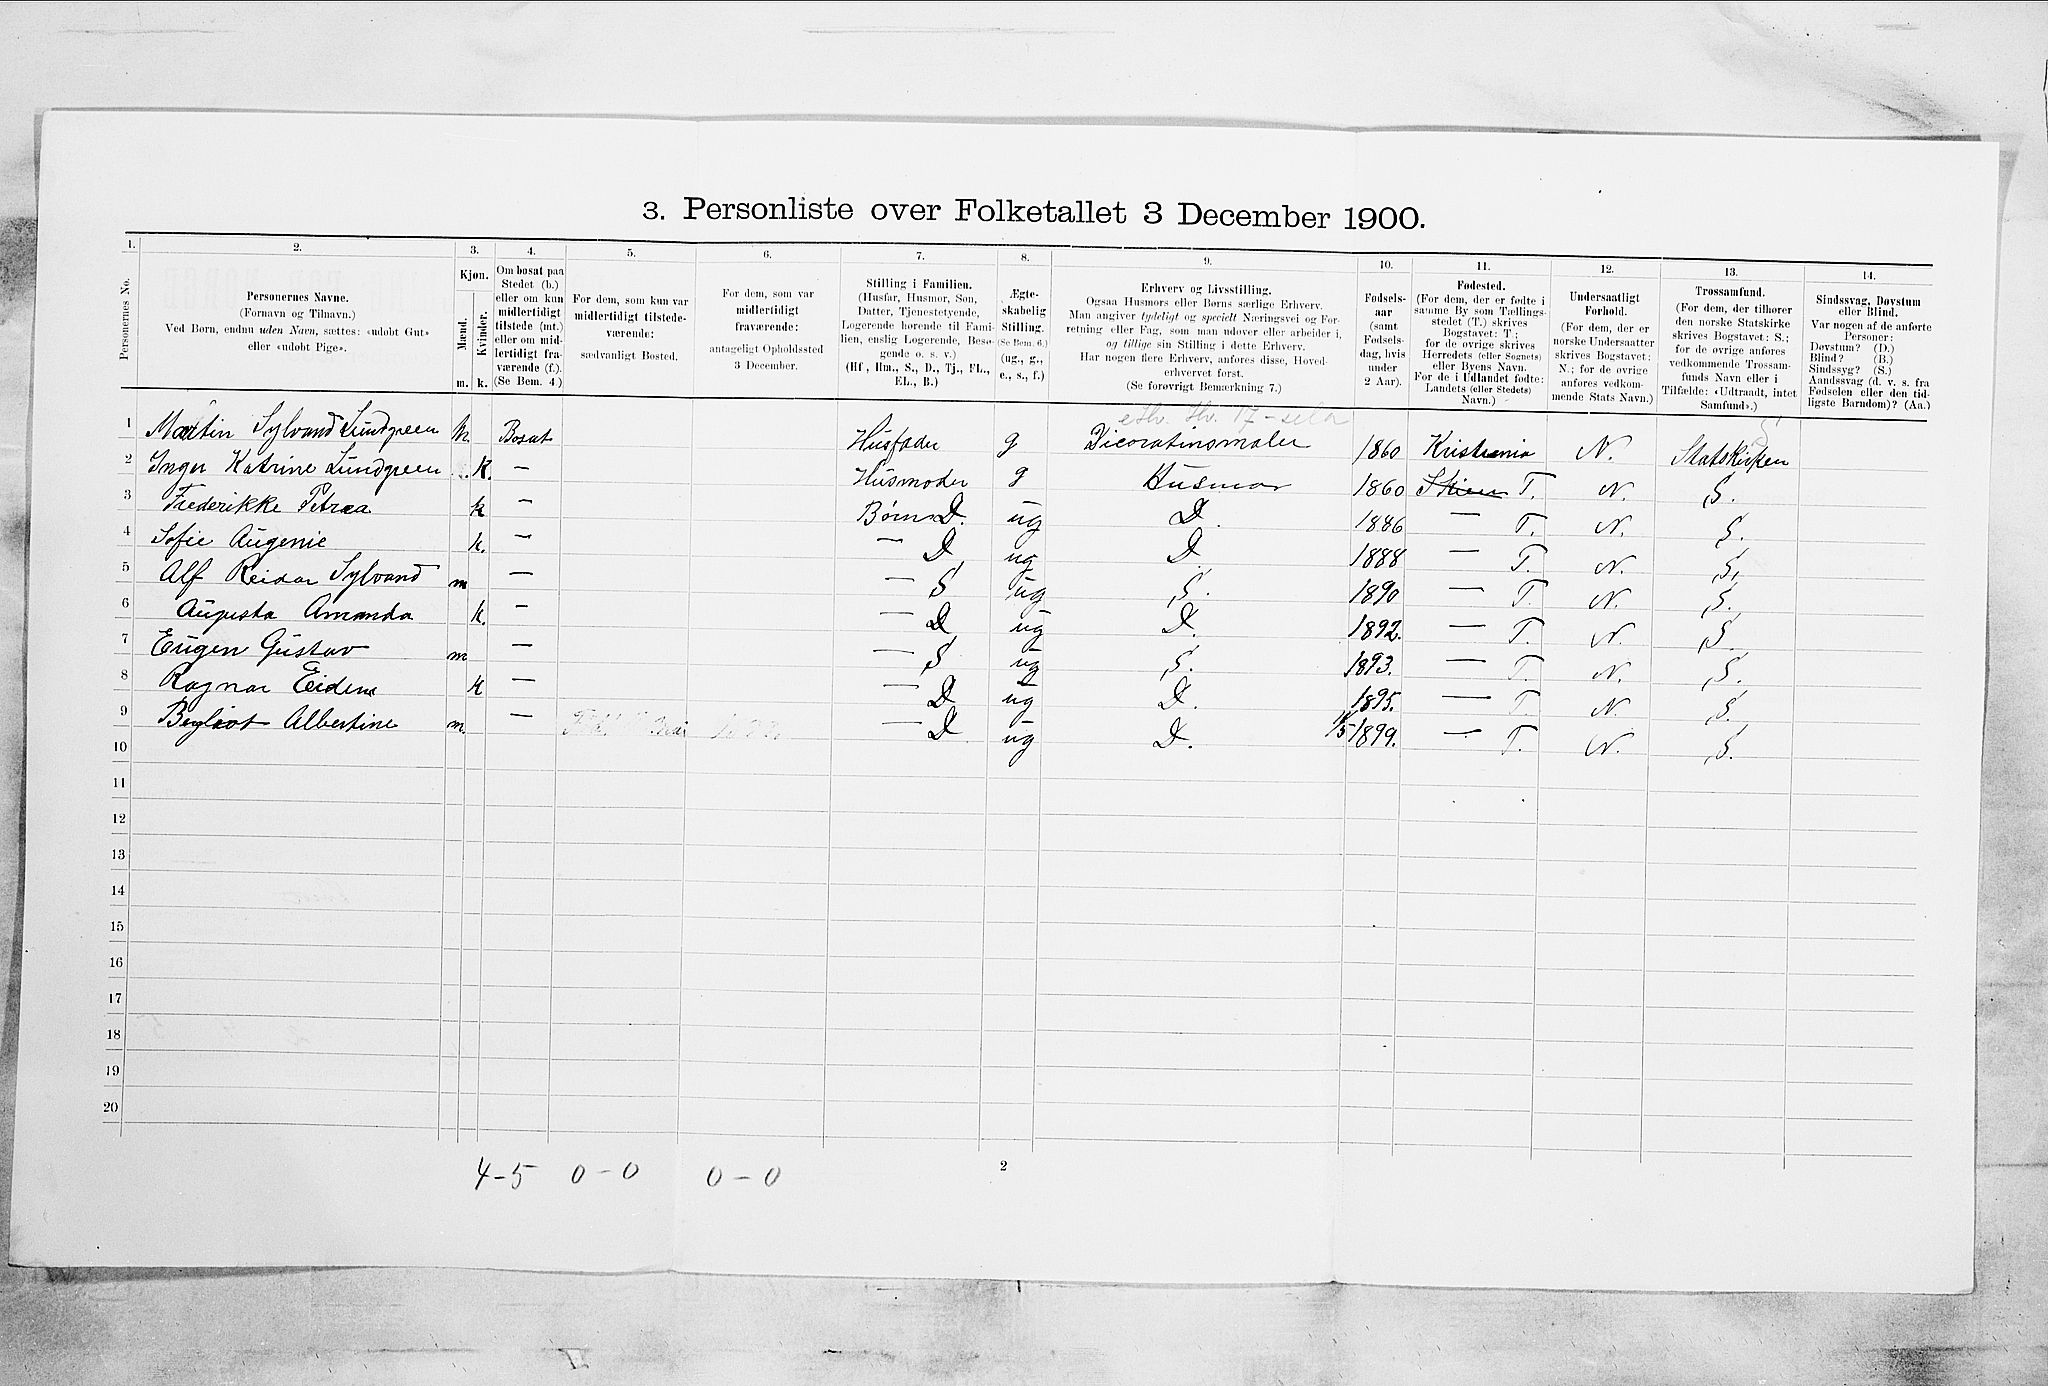 3. Personliste over Folketallet 3 December 1900.
1. 2. 3. 4. 5. 6. 7. 8. 9. 10. 11. 12. 13. 14.
Personernes No.
Personernes Navne.
(Fornavn og Tilnavn.)
Ved Børn, endnu uden Navn, sættes: «udøbt Gut»
eller «udøbt Pige».
Kjøn.
Mænd.
Kvinder.
m. k.
Om bosat paa
Stedet (b.)
eller om kun
midlertidigt
tilstede (mt.)
eller om mid-
lertidigt fra-
værende (f.).
(Se Bem. 4.)
For dem, som kun var
midlertidigt tilstede-
værende:
sædvanligt Bosted.
For dem, som var
midlertidigt
fraværende:
antageligt Opholdssted
3 December.
Stilling i Familien.
(Husfar, Husmor, Søn,
Datter, Tjenestetyende,
Logerende hørende til Fami-
lien, enslig Logerende, Besø-
gende o. s. v.)
(Hf, Hm., S., D., Tj., FL.,
EL., B.)
Ægte-
skabelig
Stilling.
(Se Bem. 6.)
(ug., g.,
e., s., f.)
Erhverv og Livsstilling.
Ogsaa Husmors eller Børns særlige Erhverv.
Man angiver tydeligt og specielt Næringsvei og For-
retning eller Fag, som man udover eller arbeider i,
og tillige sin Stilling i dette Erhverv.
Har nogen flere Erhverv, anføres disse, Hoved-
erhvervet først.
(Se forøvrigt Bemærkning 7.)
Fødsels-
aar
(samt
Fødsels-
dag, hvis
under
2 Aar).
Fødested.
(For dem, der er fødte i
samme By som Tællings-
stedet (T.) skrives
Bogstavet: T.;
for de øvrige skrives
Herredets (eller Sognets)
eller Byens Navn.
For de i Udlandet fødte:
Landets (eller Stedets)
Navn.)
Undersaatligt
Forhold.
(For dem, der er
norske Undersaatter
skrives Bogstavet:
N.; for de øvrige
anføres vedkom-
mende Stats Navn.)
Trossamfund.
(For dem, der tilhører
den norske Statskirke
skrives Bogstavet: S.;
for de øvrige anføres
vedkommende Trossam-
funds Navn eller i
Tilfælde: «Udtraadt, intet
Samfund».)
Sindssvag, Døvstum
eller Blind.
Var nogen af de anførte
Personer:
Døvstum? (D.)
Blind? (B.)
Sindssyg? (S.)
Aandssvag (d. v. s. fra
Fødselen eller den tid-
ligste Barndom)? (Aa.)
1 Martin Sylvand Lundgreen m. Bosat Husfader g Dicorationsmaler 1860 Kristiania N. Statskirken
2 Inger Katrine Lundgreen k. — Husmoder g Husmor 1860 Skien T. N. S.
3 Frederikke Petrea k — Børn D. ug D. 1886 — T. N. S.
4 Sofie Augenie k. — — D ug D 1888 — T. N. S.
5 Alf Reidar Sylvand m — — S ug S. 1890 — T. N. S.
6 Augusta Amanda k. — — D ug D. 1892. — T. N. S.
7 Eugen Gustav m — — S ug S. 1893. — T. N. S.
8 Ragnar Eidem k — — D ug D. 1895. — T N. S.
9 Albertine m. — — D ug D. 1899. — T. N. S.
10
11
12
13
14
15
16
17
18
19
20
4-5 0-0 0-0
2